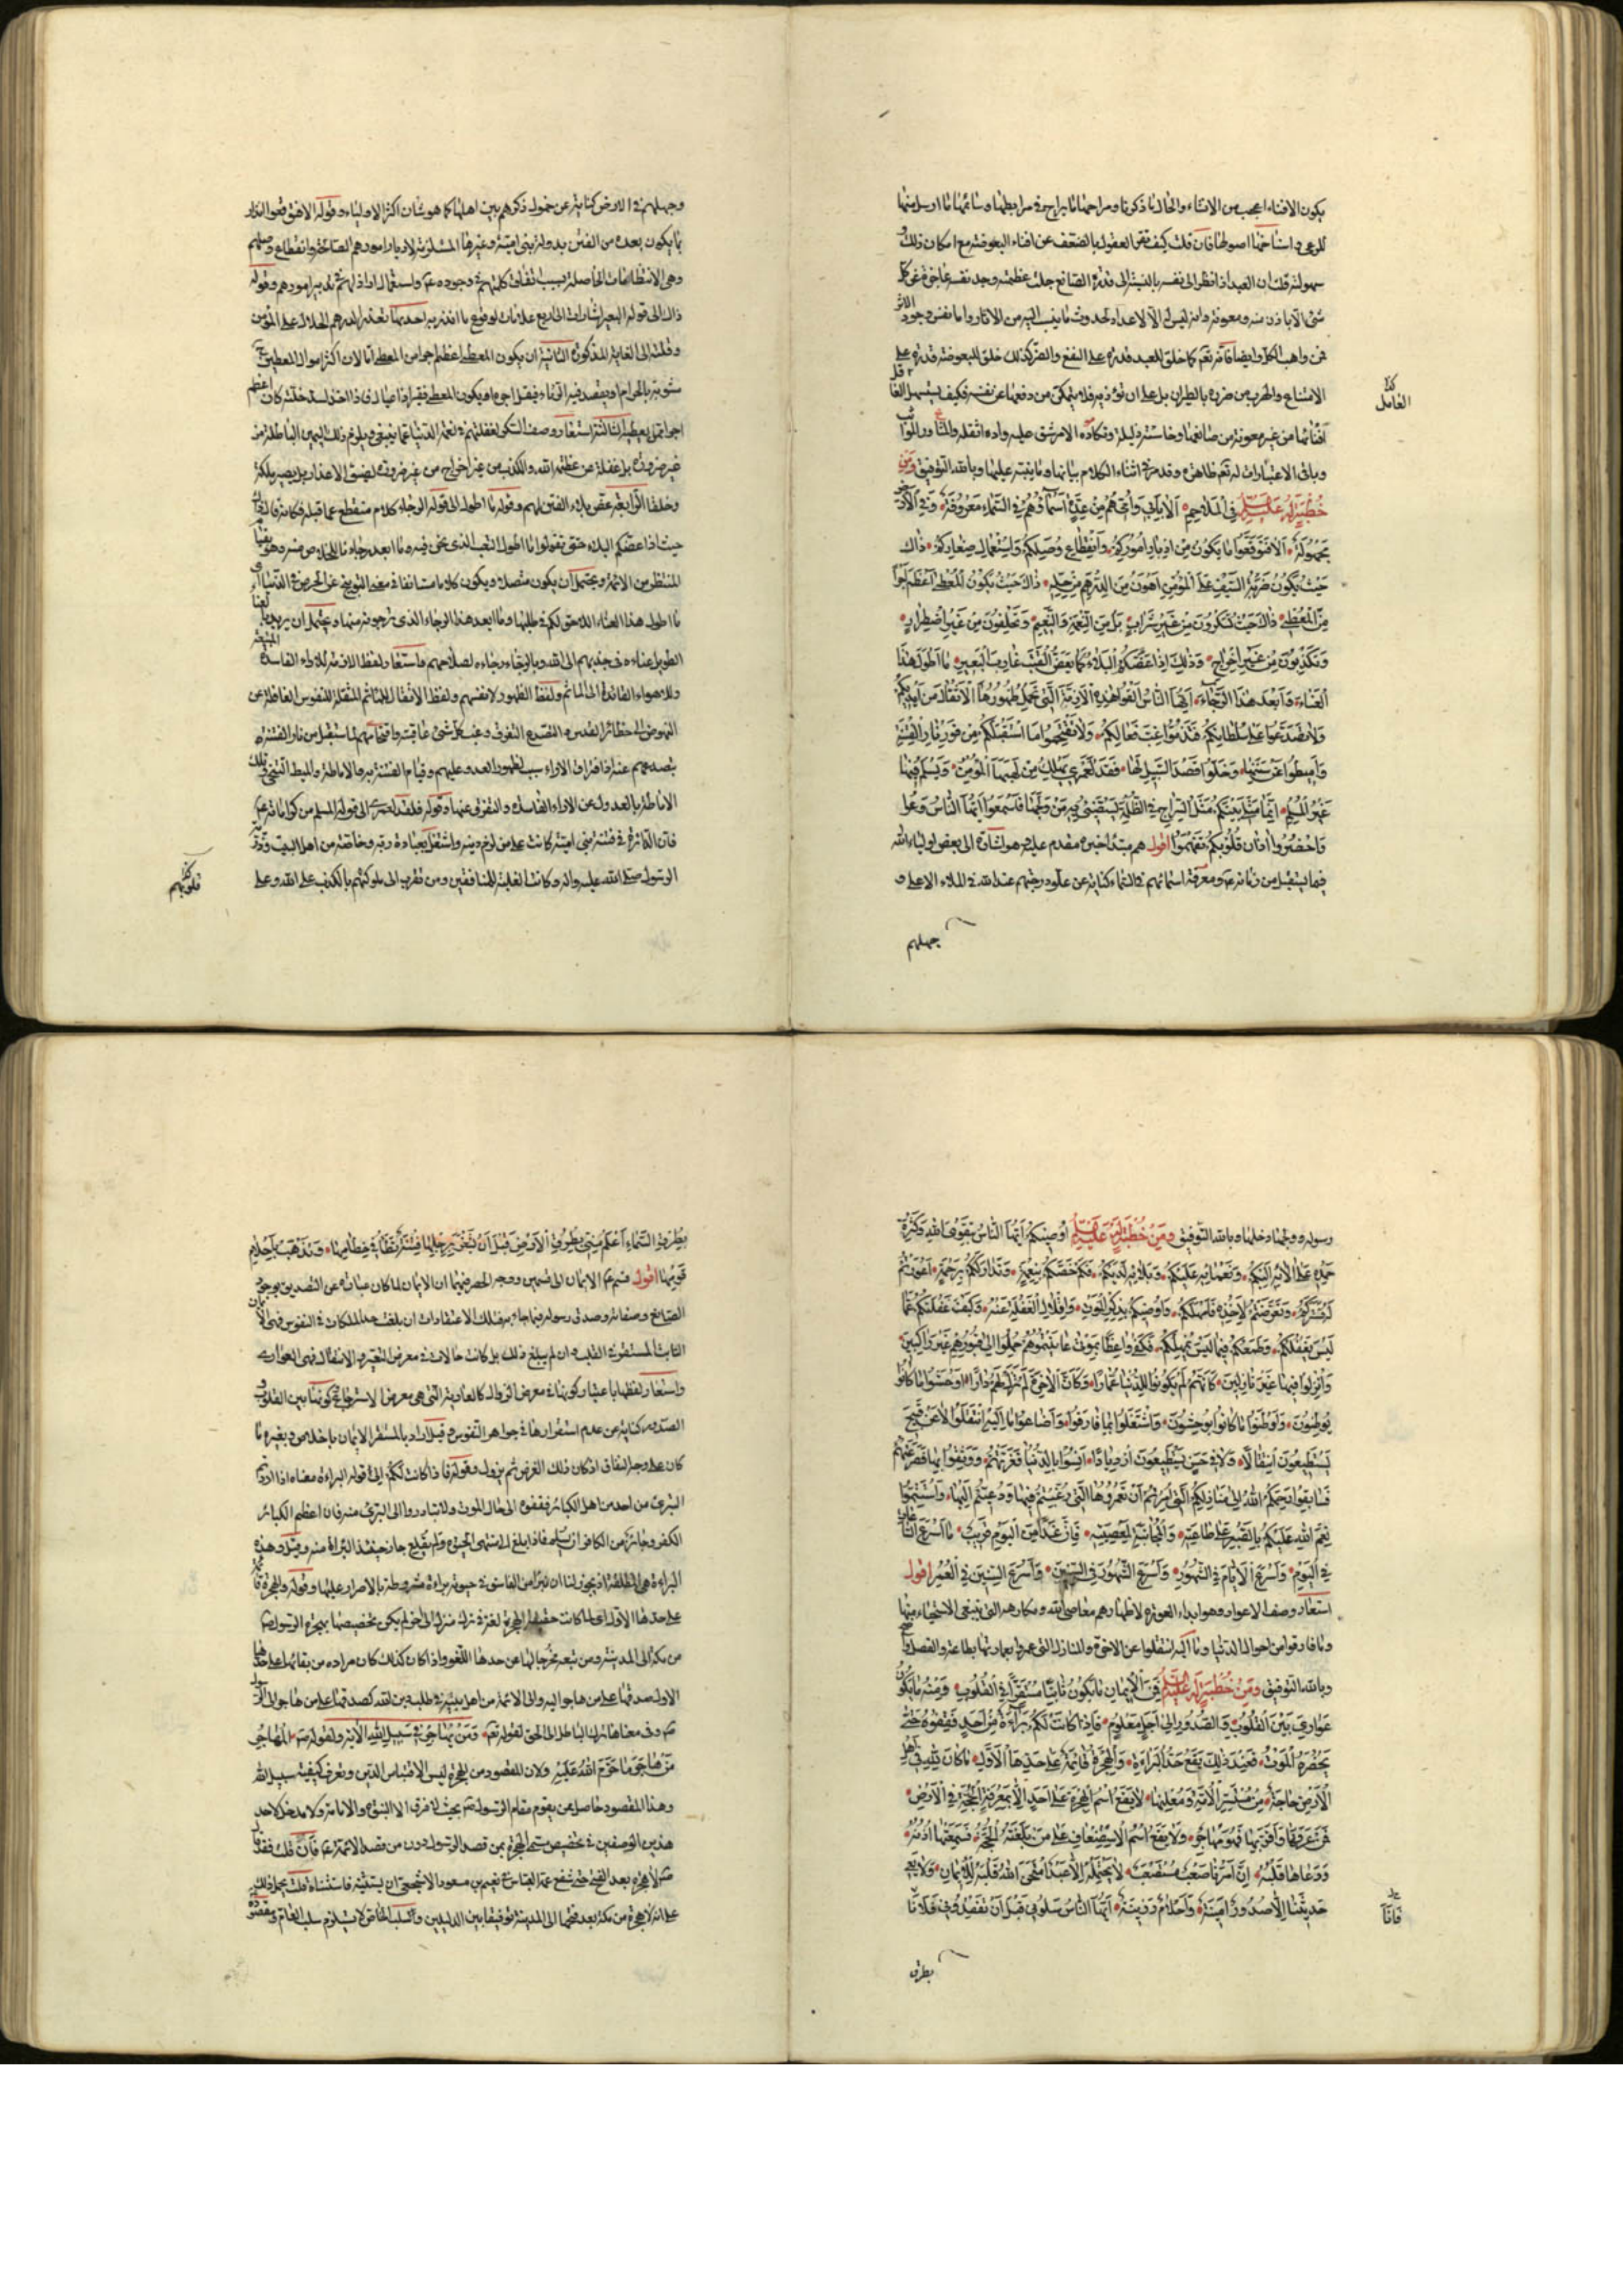 يكون الافناء اعجب من الانشاء والحال ما ذكرنا ومراحها ما يراح في مرابطها وسائمها ما ارسل منها
للرعي واسناخها اصولها فان قلت كيف تقر العقول بالضعف عن افناء البعوضة مع امكان ذلك و
سهولته قلت ان العبد اذا نظر الى نفسه بالنسبة الى قدرة الصانع جلت عظمته وجد نفسه عاجزة عن كل
شيء الا باذن منه ومعونة وانه ليس له الا الاعداد لحدوث ما ينسب اليه من الاثار واما نفس وجود الاثر
فمن واهب الكل وايضا فانه تعم كما خلق للعبد قدرة على النفع والضر كذلك خلق للبعوضة قدرة على
الامتناع والهرب من ضرره بالطيران بل على ان تؤذيه فلا يتمكن من دفعها عن نفسه فكيف يستسهل
افنائها من غير معونة من صانعها وخاسئة ذليلة وتكاده الامر شق عليه واده اثقله
وباقي الاعتبارات له تعم ظاهرة وقد مر في اثناء الكلام بيانها وما ينبه عليها وبالله التوفيق ومن
خطبة له عليه السلام في الملاحم الا بابي وامي هم من عدة اسماؤهم في السماء معروفة وفي الارض
مجهولة الا فتوقعوا ما يكون من ادبار اموركم وانقطاع وصلكم واستعمال صغاركم ذاك
حيث تكون ضربة السيف على المؤمن اهون من الدرهم من حله ذاك حيث يكون المعطى اعظم اجرا
من المعطي ذاك حيث تسكرون من غير شراب بل من النعمة والنعيم وتحلفون من غير اضطرار
وتكذبون من غير احراج وذلك اذا عضكم البلاء كما يعض القتب غارب البعير ما اطول هذا
العناء وابعد هذا الرجاء ايها الناس القوا هذه الازمة التي تحمل ظهورها الاثقال من ايديكم
ولا تصدعوا على سلطانكم فتذموا غب فعالكم ولا تقتحموا ما استقبلكم من فور نار الفتنة
واميطوا عن سننها وخلوا قصد السبيل لها فقد لعمري يهلك من لهبها المؤمن ويسلم فيها
غير المسلم انما مثلي بينكم مثل السراج في الظلمة يستضيء به من ولجها فاسمعوا ايها الناس وعوا
واحضروا اذان قلوبكم تفهموا اقول هم مبتدا خبره مقدم عليه وهو اشارة الى بعض اولياء الله
فيما يستقبل من زمانه عم ومعرفة اسمائهم في السماء كناية عن علو درجتهم عند الله في الملاء الاعلى و
جهلهم
وجهلهم في الارض كناية عن خمول ذكرهم بين اهلها كما هو شان اكثر الاولياء وقوله الا فتوقعوا انذار
بما يكون بعده من الفتن بدولة بني امية وغيرها المستلزمة لادبار امورهم الصالحة وانقطاع وصلهم
وهي الانتظامات الحاصلة بسبب اتفاق كلمتهم في وجوده عم واستعمال اراذلهم في تدبير امورهم وقوله
ذاك الى قوله البعير اشارات الى اربع علامات لوقوع ما انذر به احديها تعذر الدرهم الحلال على المؤمن
وقلته الى الغاية المذكورة الثانية ان يكون المعطى اعظم اجرا من المعطي اما لان اكثر اموال المعطين ح
مشوبة بالحرام او يقصد فيه الرياء فيقل اجره او يكون المعطى فقيرا ذا عيال فاذا اخذ لسد خلته كان اعظم
اجرا ممن يعطيه الثالثة استعار وصف السكر لغفلتهم في نعم الدنيا عما ينبغي ويلزم ذلك اليمين الباطلة من
غير ضرورة بل غفلة عن عظمة الله والكذب من غير احراج من غير ضرورة
وحلفا الرابعة عض بلاء الفتن لهم وقوله ما اطول الى قوله الرجاء كلام منقطع عما قبله فكانه قال
حيث اذا عضكم البلاء حتى تقولوا ما اطول التعب الذي نحن فيه وما ابعد رجاءنا للخلاص منه وهو
المنتظر من الائمة ويحتمل ان يكون متصلا ويكون كلاما مستانفا في معنى التوبيخ عن الحرص في الدنيا اي
ما اطول هذا العناء اللاحق لكم في طلبها وما ابعد هذا الرجاء الذي ترجونه منها ويحتمل ان يريد
الطويل عناءه في جذبهم الى الله وبالرجاء رجاءه لصلاحهم واستعار لفظ الازمة للاراء الفاسدة
وللاهواء القائدة الى الماثم ولفظ الظهور لانفسهم ولفظ الاثقال للماثم المثقلة للنفوس الغافلة عن
النهوض الى حظائر القدس والتصدع التفرق وغب كل شيء عاقبته واقتحامهم لما استقبل من نار الفتنة
بتصدعهم عنه اذ افتراق الاراء سبب لظهور العدو عليهم وقيام الفتنة
الاماطة بالعدول عن الاراء الفاسدة والتفرق عنها وقوله فلقد لعمري الى قوله المسلم من كراماته عم
فان الدائرة في فتنة بني امية كانت على من لزم دينه واشتغل بعبادة ربه وخاصته من اهل البيت وذرية
الرسول صلى الله عليه واله وكانت الغلبة للمنافقين ومن تقرب الى ملوكهم بالكذب على الله وعلى
رسوله ووجلها دخلها وبالله التوفيق ومن خطبة له عليه السلام اوصيكم ايها الناس بتقوى الله وكثرة
حمده على آلائه اليكم ونعمائه عليكم وبلائه لديكم فكم خصكم بنعمة وتدارككم برحمة اعورتم
له فستركم وتعرضتم لاخذه فامهلكم واوصيكم بذكر الموت واقلال الغفلة عنه وكيف غفلتكم عما
ليس يغفلكم وطمعكم فيما ليس يمهلكم فكفى واعظا بموتى عاينتموهم حملوا الى قبورهم غير راكبين
وانزلوا فيها غير نازلين كانهم لم يكونوا للدنيا عمارا وكان الاخرة لم تزل لهم دارا اوحشوا ما كانوا
يوطنون واوطنوا ما كانوا يوحشون واشتغلوا بما فارقوا واضاعوا ما اليه انتقلوا لا عن قبيح
يستطيعون انتقالا ولا في حسن يستطيعون ازديادا انسوا بالدنيا فغرتهم ووثقوا بها فصرعتهم
فسابقوا رحمكم الله الى منازلكم التي امرتم ان تعمروها والتي رغبتم فيها ودعيتم اليها واستتموا
نعم الله عليكم بالصبر على طاعته والمجانبة لمعصيته فان غدا من اليوم قريب ما اسرع الساعات
في اليوم واسرع الايام في الشهور واسرع الشهور في السنين واسرع السنين في العمر اقول
استعار وصف الاعوار وهو ابداء العورة لاظهارهم معاصي الله ومكارهه التي ينبغي الاستحياء منها
وما فارقوا من احوال الدنيا وما اليه انتقلوا عن الاخرة والمنازل التي امروا بعمارتها بطاعته والفصل واضح
وبالله التوفيق ومن خطبة له عليه السلام فمن الايمان ما يكون ثابتا مستقرا في القلوب ومنه ما يكون
عواري بين القلوب والصدور الى اجل معلوم فاذا كانت لكم براءة من احد فقفوه حتى
يحضره الموت فعند ذلك يقع حد البراءة والهجرة قائمة على حدها الاول ما كان لله في اهل
الارض حاجة من مستسر الامة ومعلنها لا يقع اسم الهجرة على احد الا بمعرفة الحجة في الارض
فمن عرفها واقر بها فهو مهاجر ولا يقع اسم الاستضعاف على من بلغته الحجة فسمعتها اذنه
ووعاها قلبه ان امرنا صعب مستصعب لا يحتمله الا عبد امتحن الله قلبه للايمان ولا يعي
حديثنا الا صدور امينة واحلام رزينة ايها الناس سلوني قبل ان تفقدوني فلانا
بطرق
بطرق السماء اعلم مني بطرق الارض قبل ان تشغر برجلها فتنة تطا في خطامها وتذهب باحلام
قومها اقول قسم عم الايمان الى قسمين ووجه الحصر فيهما ان الايمان لما كان عبارة عن التصديق بوجود
الصانع وصفاته وصدق رسوله فيما جاء به فتلك الاعتقادات ان بلغت حد الملكات في النفوس فهي الايمان
الثابت المستقر في القلب وان لم يبلغ ذلك بل كانت حالات في معرض التغير والانتقال فهي العواري
واستعار لفظها باعتبار كونها في معرض الزوال كالعارية التي هي معرض الاسترجاع وكونها بين القلوب و
الصدور كناية عن عدم استقرارها في جواهر النفوس وقيل اراد بالمستقر الايمان باخلاص وبغيره ما
كان على وجه النفاق اذ كان ذلك الغرض ثم يزول وقوله فاذا كانت لكم الى قوله البراءة معناه اذا اردتم
التبرئ من احد من اهل الكبائر فقفوه الى حال الموت ولا تبادروا الى التبرئ منه فان اعظم الكبائر
الكفر وجائز من الكافر ان يسلم فاذا بلغ الى منتهى الحيوة ولم يقلع جاز حينئذ البراءة منه وقيل وهذه
البراءة هي المطلقة اذ يجوز لنا ان نبرأ من الفاسق في حيوته براءة مشروطة بالاصرار عليها وقوله والهجرة
على حدها الاول اي لما كانت حقيقة الهجرة لغة ترك منزل الى اخر لم يكن تخصيصها بهجرة الرسول ص
من مكة الى المدينة ومن تبعه مخرجا لها عن حدها اللغوي واذا كان كذلك كان مراده من بقائها على حدها
الاول صدقها على من هاجر اليه والى الائمة من اهل بيته في طلب دين الله كصدقها على من هاجر الى الرسول
ص وفي معناها ترك الباطل الى الحق لقوله تعم ومن يهاجر في سبيل الله الاية ولقوله ص المهاجر
من هاجر ما حرم الله عليه ولان المقصود من الهجرة ليس الا اقتباس الدين وتعرف كيفية سبيل الله
وهذا المقصود حاصل عن يقوم مقام الرسول ص بحيث لا فرق الا النبوة والامامة ولا مدخل لاحد
هذين الوصفين في تخصيص مسمى الهجرة بمن قصد الرسول دون من قصد الائمة عم فان قلت فقد قال
ص لا هجرة بعد الفتح حتى شفع عمه العباس في نعيم بن مسعود الاشجعي ان يستثنيه فاستثناه قلت يحمل ذلك
على انه لا هجرة من مكة بعد فتحها الى المدينة توفيقا بين الدليلين وسلب الخاص لا يستلزم سلب العام ومقصوده